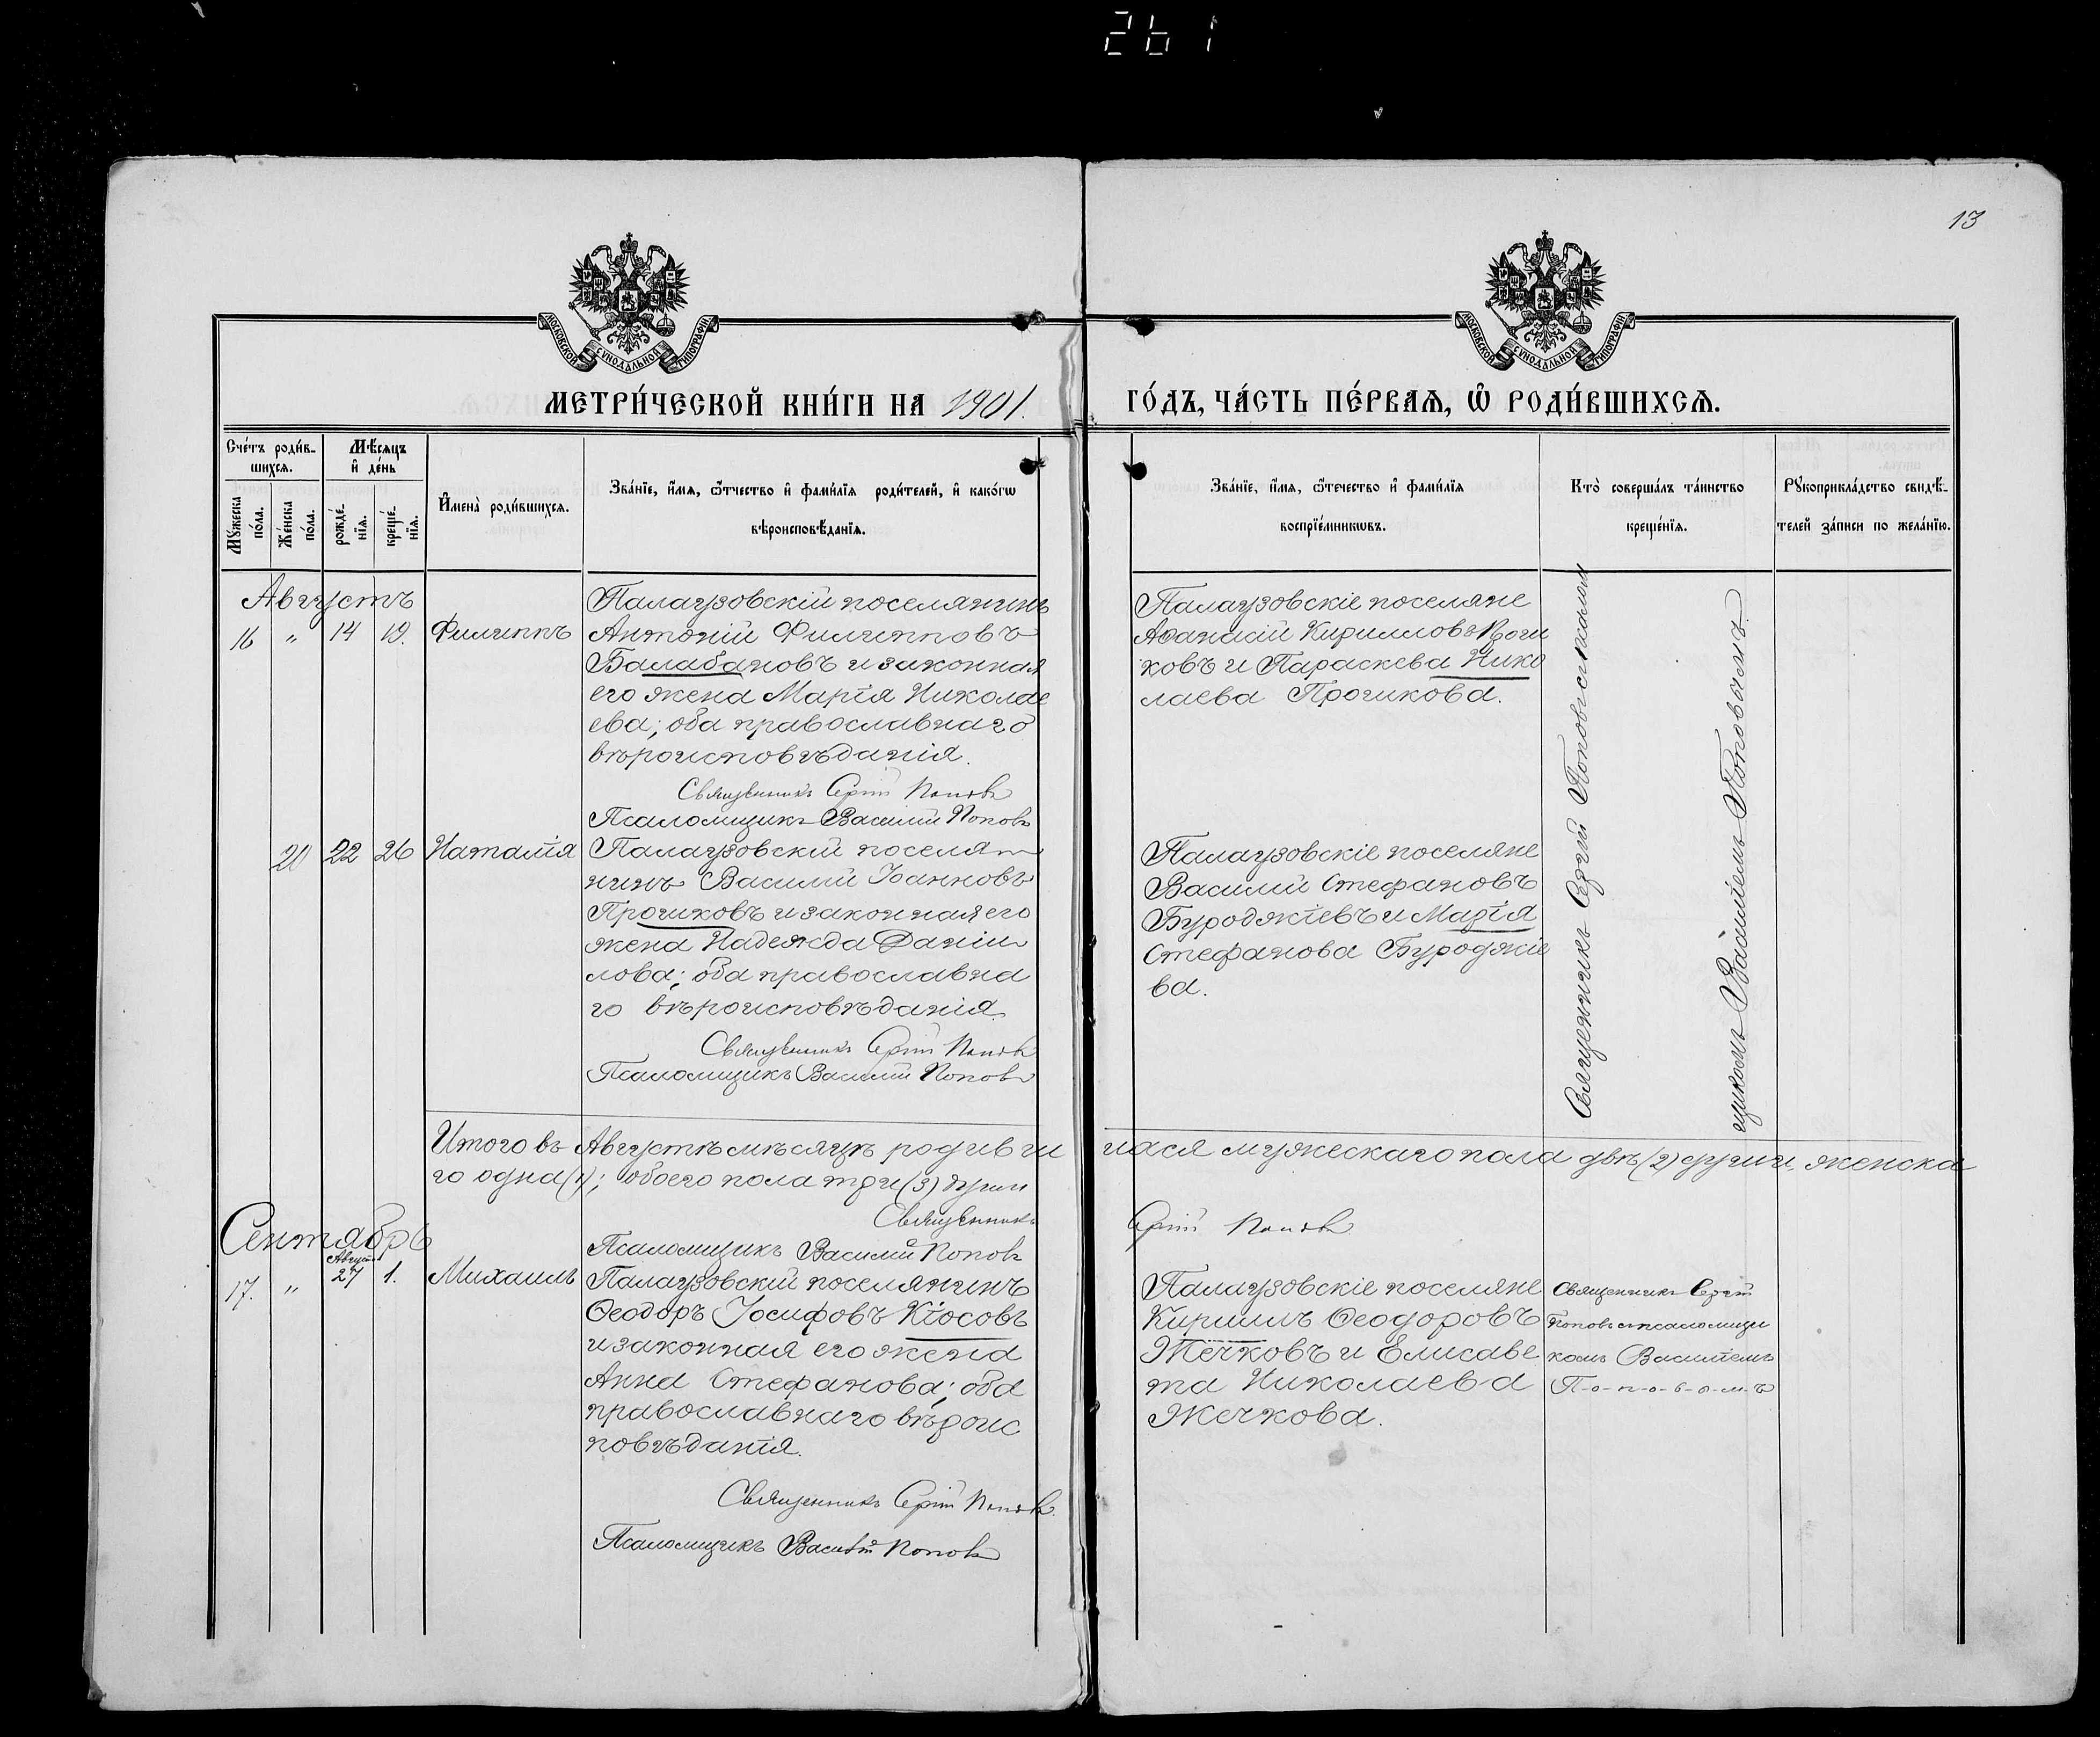 261
13
МОСКОВСКОЙ СУНОДАЛЬНОЙ ТИПОГРАФІИ
МОСКОВСКОЙ СУНОДАЛЬНОЙ ТИПОГРАФІИ
МЕТРИ́ЧЕСКОЙ КНИ́ГИ НА 1901.
ГО́ДЪ, ЧА́СТЬ ПЕ́РВАѦ, Ѡ РОДИ́ВШИХСѦ.
Сче́тъ роди́в-
шихсѧ.
Мѣ́сѧцъ
и҆ де́нь
Мꙋ́жеска
по́ла.
Же́нска
по́ла.
рожде́-
нїѧ.
креще́-
нїѧ.
И҆мена̀ роди́вшихсѧ.
Зва́нїе, и҆́мѧ, ѻ҆́тчество и҆ фами́лїѧ роди́телей, и҆ како́гѡ
вѣроисповѣ́данїѧ.
Зва́нїе, и҆́мѧ, ѻ҆те́чество и҆ фами́лїѧ
воспрїе́мникѡвъ.
Кто̀ соверша́лъ та́инство
креще́нїѧ.
Рꙋкоприкла́дство свидѣ́-
телей за́писи по жела́нїю.
Августъ
16 " 14 19. Филиппъ
Палаузовскій поселянинъ
Антоній Филипповъ
Балабановъ и законная
его жена Марія Николае
ева; оба православнаго
вѣроисповѣданія.
Священникъ Сергій Поповъ
Псаломщикъ Василій Поповъ
Палаузовскіе поселяне
Аѳанасій Кирилловъ
ковъ и Параскева Нико
лаева Прочикова.
Священникъ Сергій Поповъ съ псалом
щикомъ Василіемъ Поповымъ.
20 22 26 Наталія
Палаузовскій поселя
нинъ Василій Іоанновъ
Прочиковъ и законная его
жена Надежда Даніи
лова; оба православна
го вѣроисповѣданія.
Священникъ Сергій Поповъ
Псаломщикъ Василій Поповъ
Палаузовскіе поселяне
Василій Стефановъ
Буроджіевъ и Марія
Стефанова Буроджіе
ва.
Итого въ Августѣ мѣсяцѣ родивши
мужескаго пола двѣ (2) души, женска
го одна (1); обоего пола три (3) души
Священникъ
Сергій Поповъ
Псаломщикъ Василій Поповъ
Сентябрь
Августа
17. " 27 1. Михаилъ
Палаузовскій поселянинъ
Ѳеодоръ Іосифовъ Кіосовъ
и законная его жена
Анна Стефанова; оба
православнаго вѣроис
повѣданія.
Священникъ Сергій Поповъ
Псаломщикъ Василій Поповъ
Палаузовскіе поселяне
Кириллъ Ѳеодоровъ
Жечковъ и Елисаве
та Николаева
Жечкова.
Священникъ Сергій
Поповъ съ псаломщи
комъ Василіемъ
П-о-п-о-в-о-м-ъ